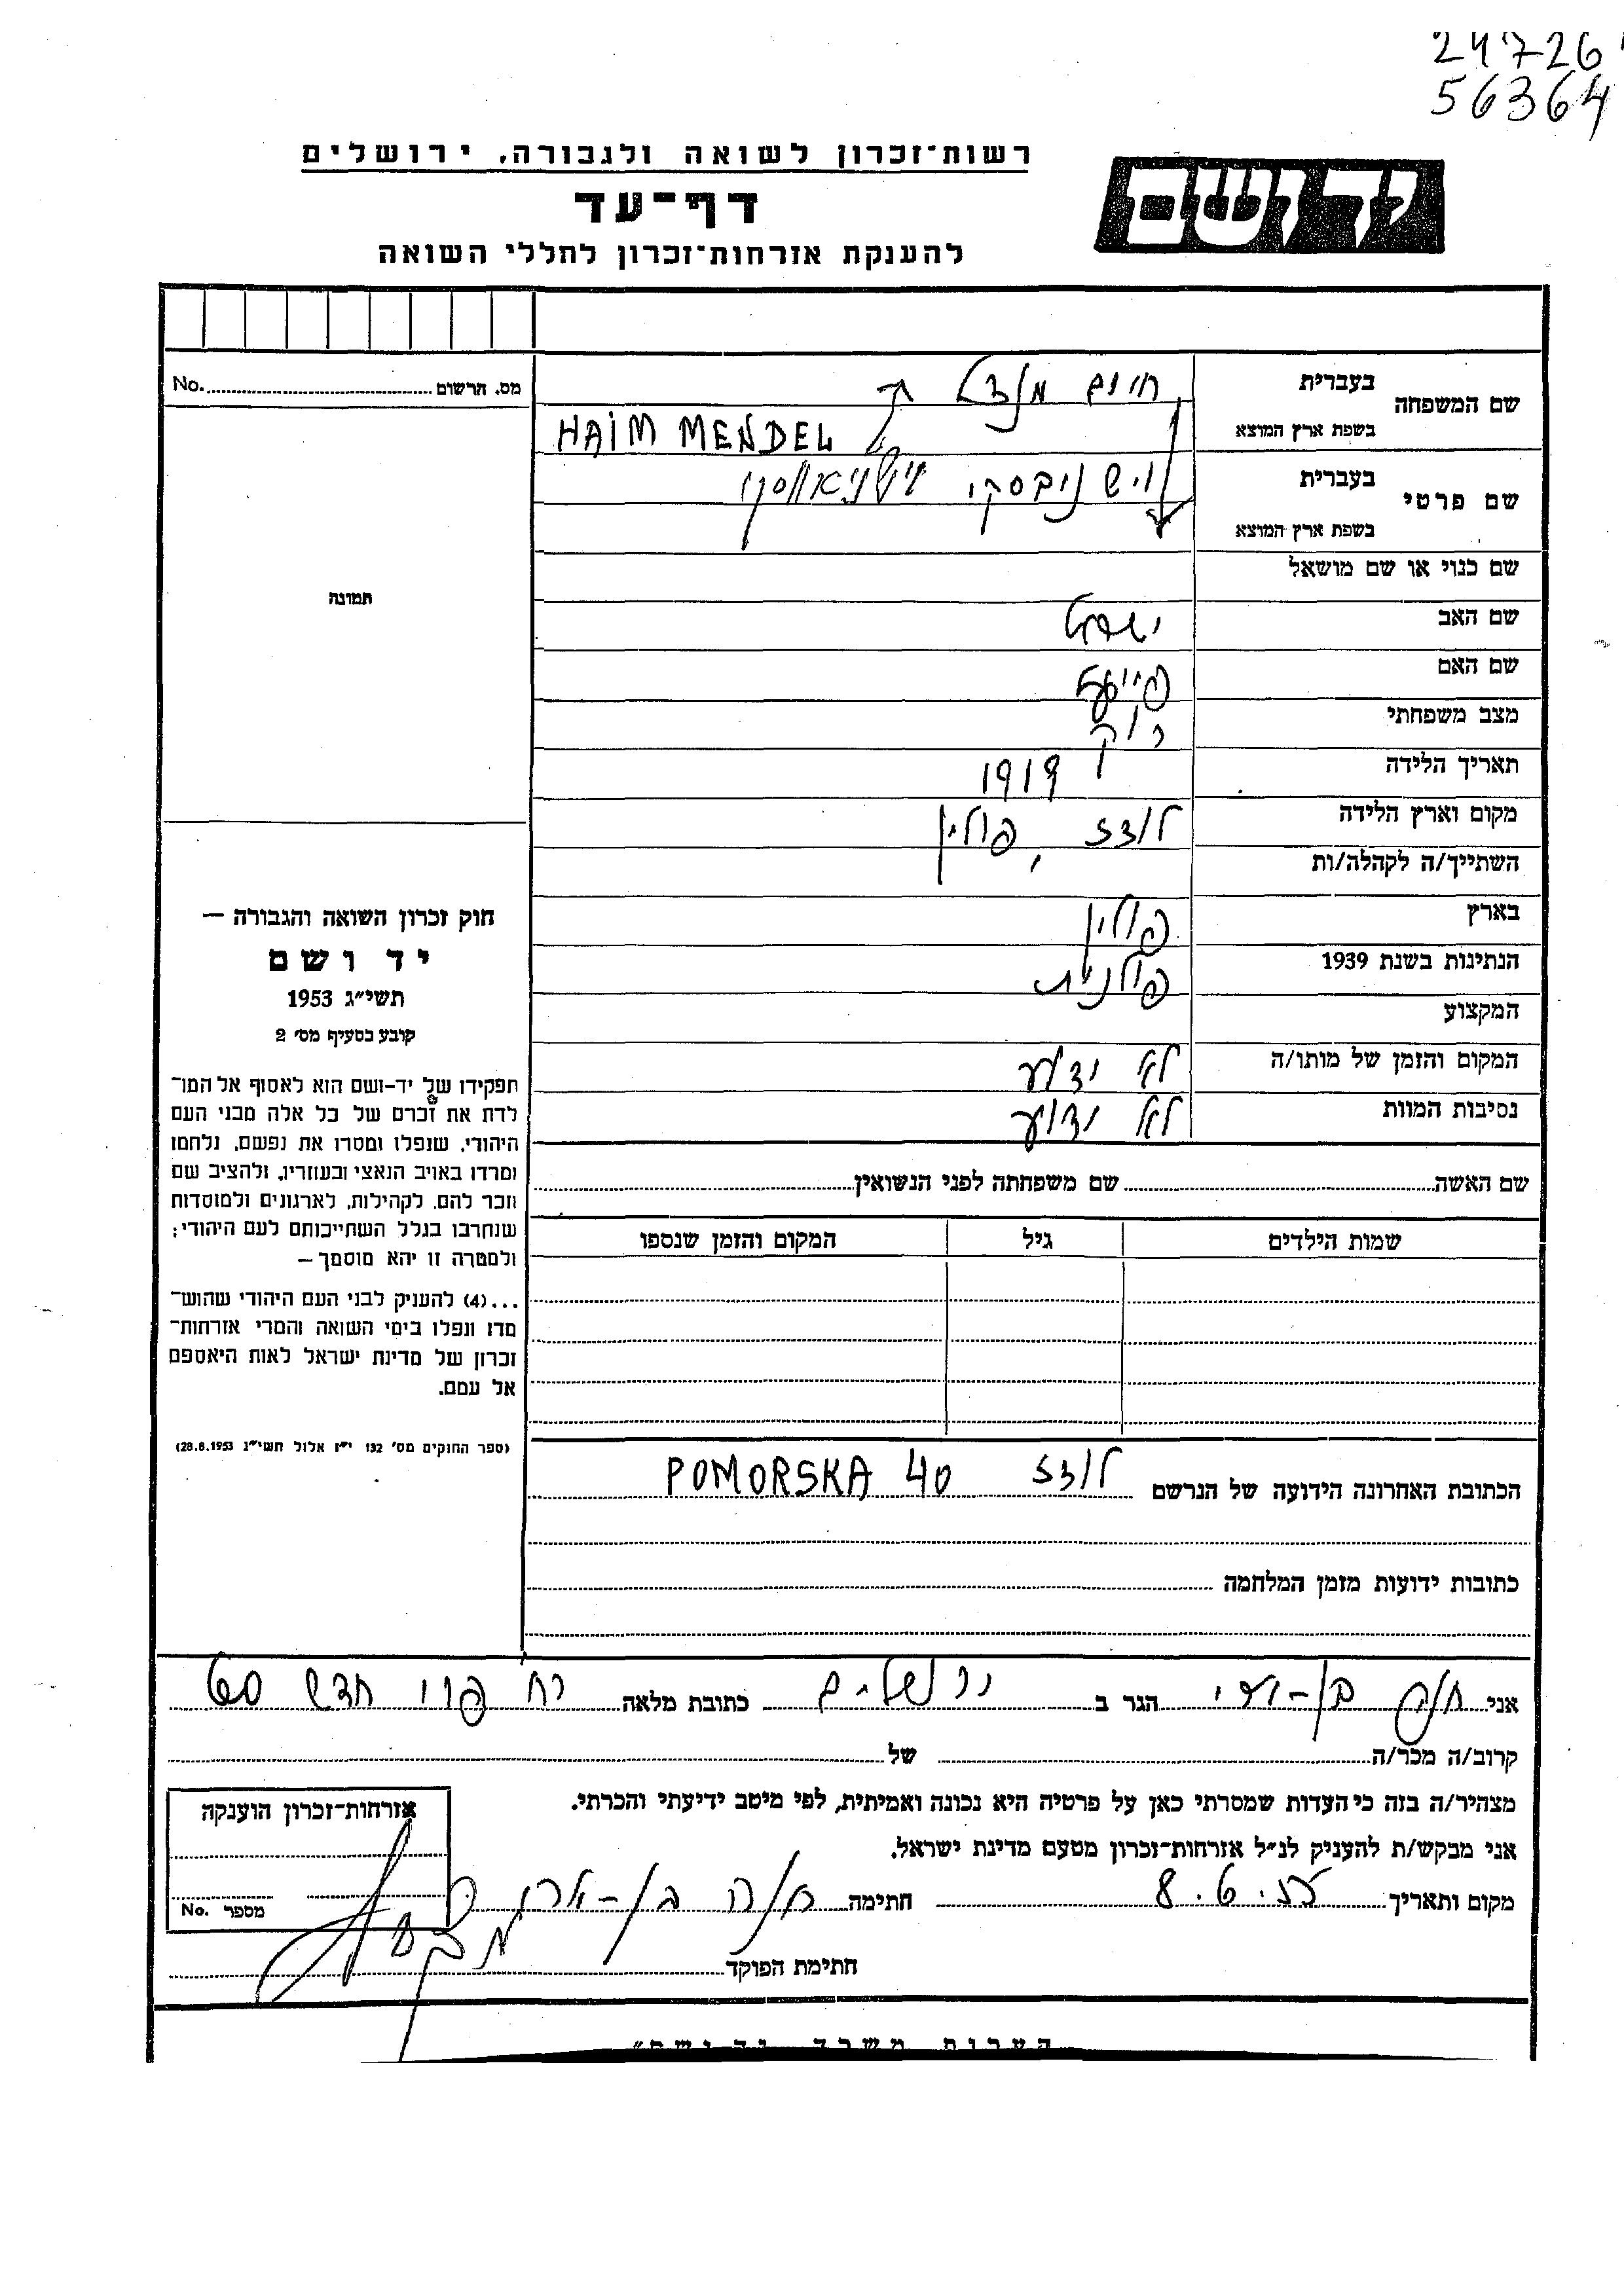 24726
56364
רשות־זכרון לשואה ולגבורה, ירושלים
יד ושם
דף־עד
להענקת אזרחות־זכרון לחללי השואה
מס. הרשום No.
תמונה
חוק זכרון השואה והגבורה —
יד ושם
תשי״ג 1953
קובע בסעיף מס׳ 2
תפקידו של יד-ושם הוא לאסוף אל המו־
לדת את זכרם של כל אלה מבני העם
היהודי, שנפלו ומסרו את נפשם, נלחמו
ומרדו באויב הנאצי ובעוזריו, ולהציב שם
וזכר להם, לקהילות, לארגונים ולמוסדות
שנחרבו בגלל השתייכותם לעם היהודי;
ולמטרה זו יהא מוסמך —
...(4) להעניק לבני העם היהודי שהוש־
מדו ונפלו בימי השואה והמרי אזרחות־
זכרון של מדינת ישראל לאות היאספם
אל עמם.
(ספר החוקים מס׳ 132 י״ז אלול תשי״ג 28.8.1953)
שם המשפחה בעברית חיים מנדל
בשפת ארץ המוצא HAIM MENDEL
שם פרטי בעברית וישניבסקי ווישניאווסקי
בשפת ארץ המוצא
שם כנוי או שם מושאל
שם האב ישראל
שם האם פייגל
מצב משפחתי רוק
תאריך הלידה 1919
מקום וארץ הלידה לודז, פולין
השתייך/ה לקהלה/ות
בארץ פולין
הנתינות בשנת 1939 פולנית
המקצוע
המקום והזמן של מותו/ה לא ידוע
נסיבות המוות לא ידוע
שם האשה שם משפחתה לפני הנשואין
שמות הילדים גיל המקום והזמן שנספו
הכתובת האחרונה הידועה של הנרשם לודז POMORSKA 40
כתובות ידועות מזמן המלחמה
אני חנה בן- הגר ב ירושלים כתובת מלאה רח פרי חדש 60
קרוב/ה מכר/ה של
מצהיר/ה בזה כי העדות שמסרתי כאן על פרטיה היא נכונה ואמיתית, לפי מיטב ידיעתי והכרתי.
אני מבקש/ת להעניק לנ״ל אזרחות־זכרון מטעם מדינת ישראל.
מקום ותאריך 8.6.55 חתימה חנה בן-
אזרחות־זכרון הוענקה
מספר No.
חתימת הפוקד
הערות משרד יד ושם